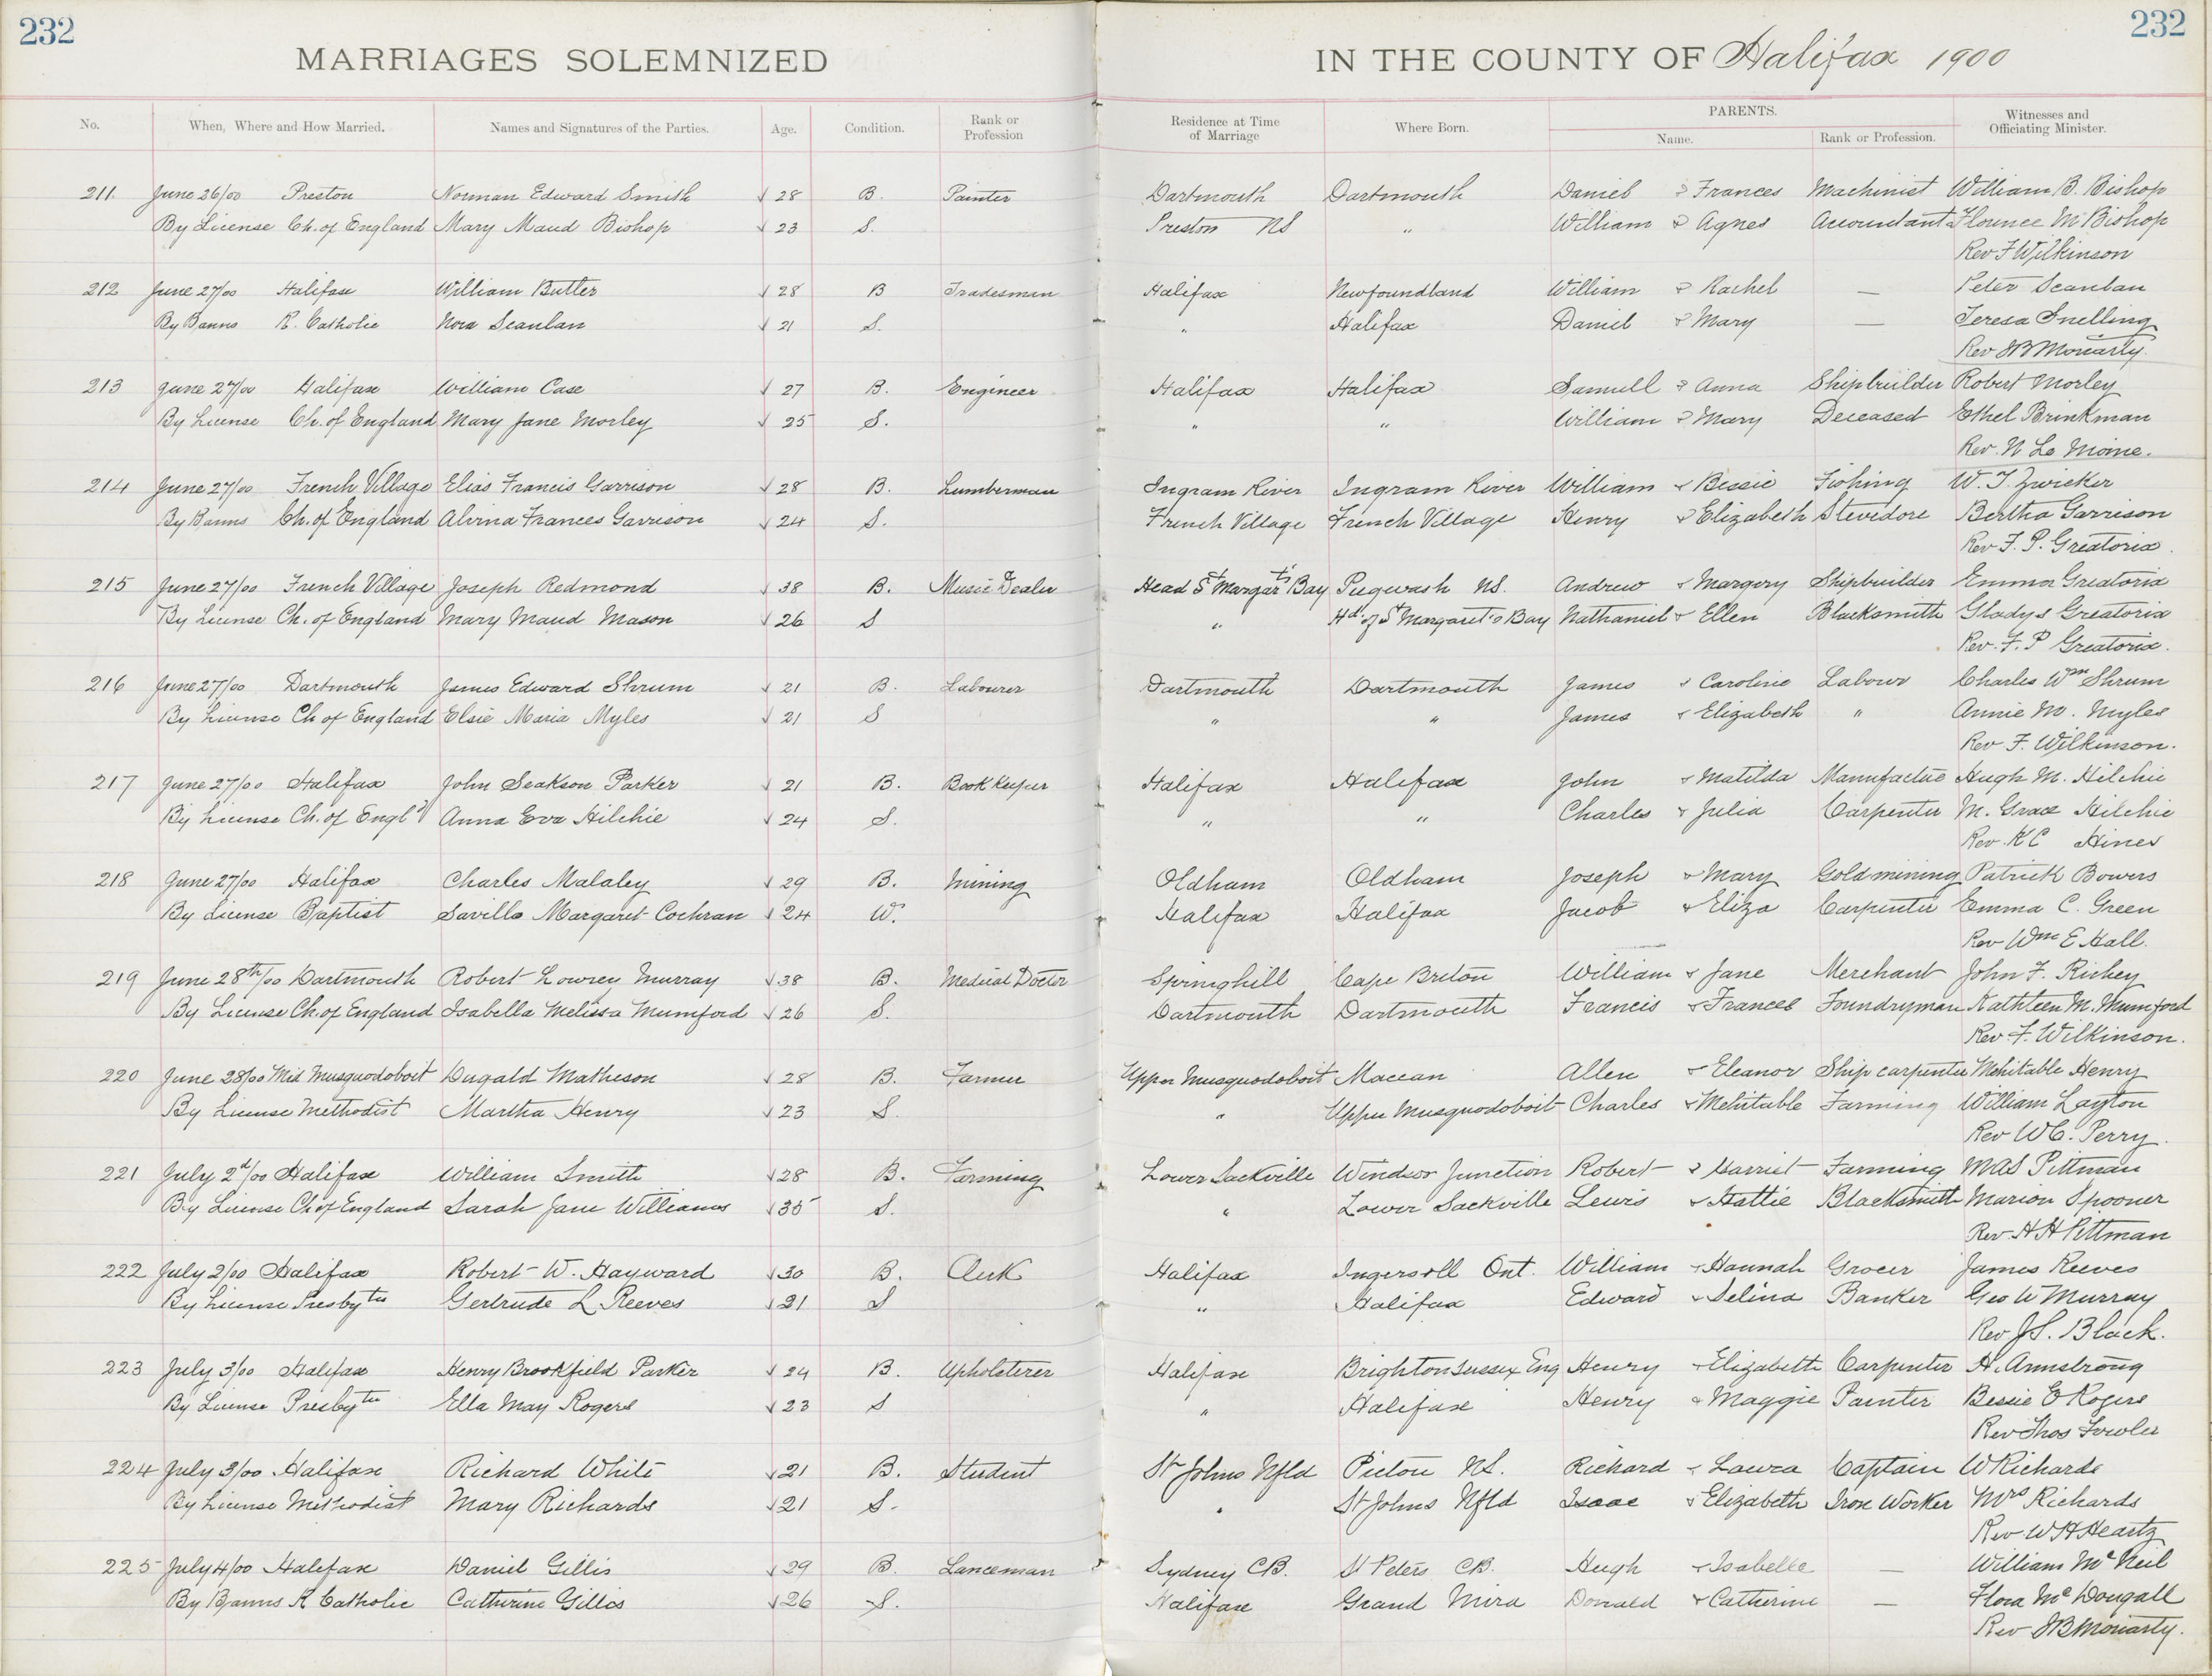 232 232
MARRIAGES SOLEMNIZED IN THE COUNTY OF Halifax 1900
No. When, Where and How Married. Names and Signatures of the Parties. Age. Condition. Rank or Profession Residence at Time of Marriage Where Born. PARENTS. Name. Rank or Profession. Witnesses and Officiating Minister.
211. June 26/00 Preston Norman Edward Smith √ 28 B. Painter Dartmouth Dartmouth Daniel & Frances Machinist William B. Bishop
By License Ch. of England Mary Maud Bishop √ 23 S. Preston NS " William & Agnes Accountant Florence M Bishop
Rev F Wilkinson
212 June 27/00 Halifax William Butler √ 28 B Tradesman Halifax Newfoundland William & Rachel — Peter Scanlan
By Banns R. Catholic Nora Scanlan √ 21 S. " Halifax Daniel & Mary — Teresa Snelling
Rev JB Moriarty.
213 June 27/00 Halifax William Case √ 27 B. Engineer Halifax Halifax Samuel & Anna Shipbuilder Robert Morley
By License Ch. of England Mary Jane Morley √ 25 S. " " William & Mary Deceased Ethel Brinkman
Rev. N Le Moine.
214 June 27/00 French Village Elias Francis Garrison √ 28 B. Lumberman Ingram River Ingram River William & Bessie Fishing W. T. Zwicker
By Banns Ch. of England Alvina Frances Garrison √ 24 S. French Village French Village Henry & Elizabeth Stevedore Bertha Garrison
Rev F. P. Greatorix.
215 June 27/00 French Village Joseph Redmond √ 38 B. Music Dealer Head St Margarts Bay Pugwash NS. Andrew & Margery Shipbuilder Emma Greatorix
By License Ch. of England Mary Maud Mason √ 26 S " Hd of St Margaret's Bay Nathaniel & Ellen Blacksmith Gladys Greatorix
Rev. F. P Greatorix.
216 June 27/00 Dartmouth James Edward Shrum √ 21 B. Labourer Dartmouth Dartmouth James & Caroline Labour Charles Wm Shrum
By License Ch of England Elsie Maria Myles √ 21 S " " James & Elizabeth " Annie M. Myles
Rev F. Wilkinson.
217 June 27/00 Halifax John Parker √ 21 B. Book Keeper Halifax Halifax John & Matilda Hugh M. Hilchie
By License Ch. of Engld Anna Eva Hilchie √ 24 S. " " Charles & Julia Carpenter M. Grace Hilchie
Rev. K C Hines
218 June 27/00 Halifax Charles Malaley √ 29 B. Mining Oldham Oldham Joseph & Mary Gold mining Patrick Bowers
By License Baptist Savilla Margaret Cochran √ 24 W. Halifax Halifax Jacob & Eliza Carpenter Emma C. Green
Rev Wm E Hall.
219 June 28th/00 Dartmouth Robert Lowrey Murray √ 38 B. Medical Doctor Springhill Cape Breton William & Jane Merchant John F. Richey
By License Ch. of England Isabella Melissa Mumford √ 26 S. Dartmouth Dartmouth Francis & Frances Foundryman Kathleen M. Mumford
Rev. F. Wilkinson.
220 June 28/00 Mid Musquodoboit Dugald Matheson √ 28 B. Farmer Upper Musquodoboit Maccan Allen & Eleanor Ship carpenter Mehitable Henry
By License Methodist Martha Henry √ 23 S. " Upper Musquodoboit Charles & Mehitable Farming William Layton
Rev W C. Perry.
221 July 2d/00 Halifax William Smith √ 28 B. Farming Lower Sackville Windsor Junction Robert & Harriet Farming MAS Pittman
By License Ch of England Sarah Jane Williams √ 35 S. " Lower Sackville Lewis & Hattie Blacksmith Marion Spooner
Rev. H H Pittman
222 July 2/00 Halifax Robert W. Hayward √ 30 B. Clerk Halifax Ingersoll Ont. William & Hannah Grocer James Reeves
By License Presbyter Gertrude L Reeves √ 21 S " Halifax Edward & Selina Banker Geo W Murray
Rev J S. Black.
223 July 3/00 Halifax Henry Brookfield Parker √ 24 B. Upholsterer Halifax Brighton Sussex Eng Henry & Elizabeth Carpenter H. Armstrong
By License Presbyter Ella May Rogers √ 23 S " Halifax Henry & Maggie Painter Bessie E Rogers
Rev Thos Fowler
224 July 3/00 Halifax Richard White √ 21 B. Student St Johns Nfld Pictou NS. Richard & Laura Captain W Richards
By License Methodist Mary Richards √ 21 S. " St Johns Nfld Isaac & Elizabeth Iron Worker Mrs Richards
Rev W H Heartz
225 July 4/00 Halifax Daniel Gillis √ 29 B. Lanceman Sydney CB. St Peters CB. Hugh & Isabella — William McNeil
By Banns R Catholic Catherine Gillis √ 26 S. Halifax Grand Mira Donald & Catherine — Flora McDougall
Rev JB Moriarty.